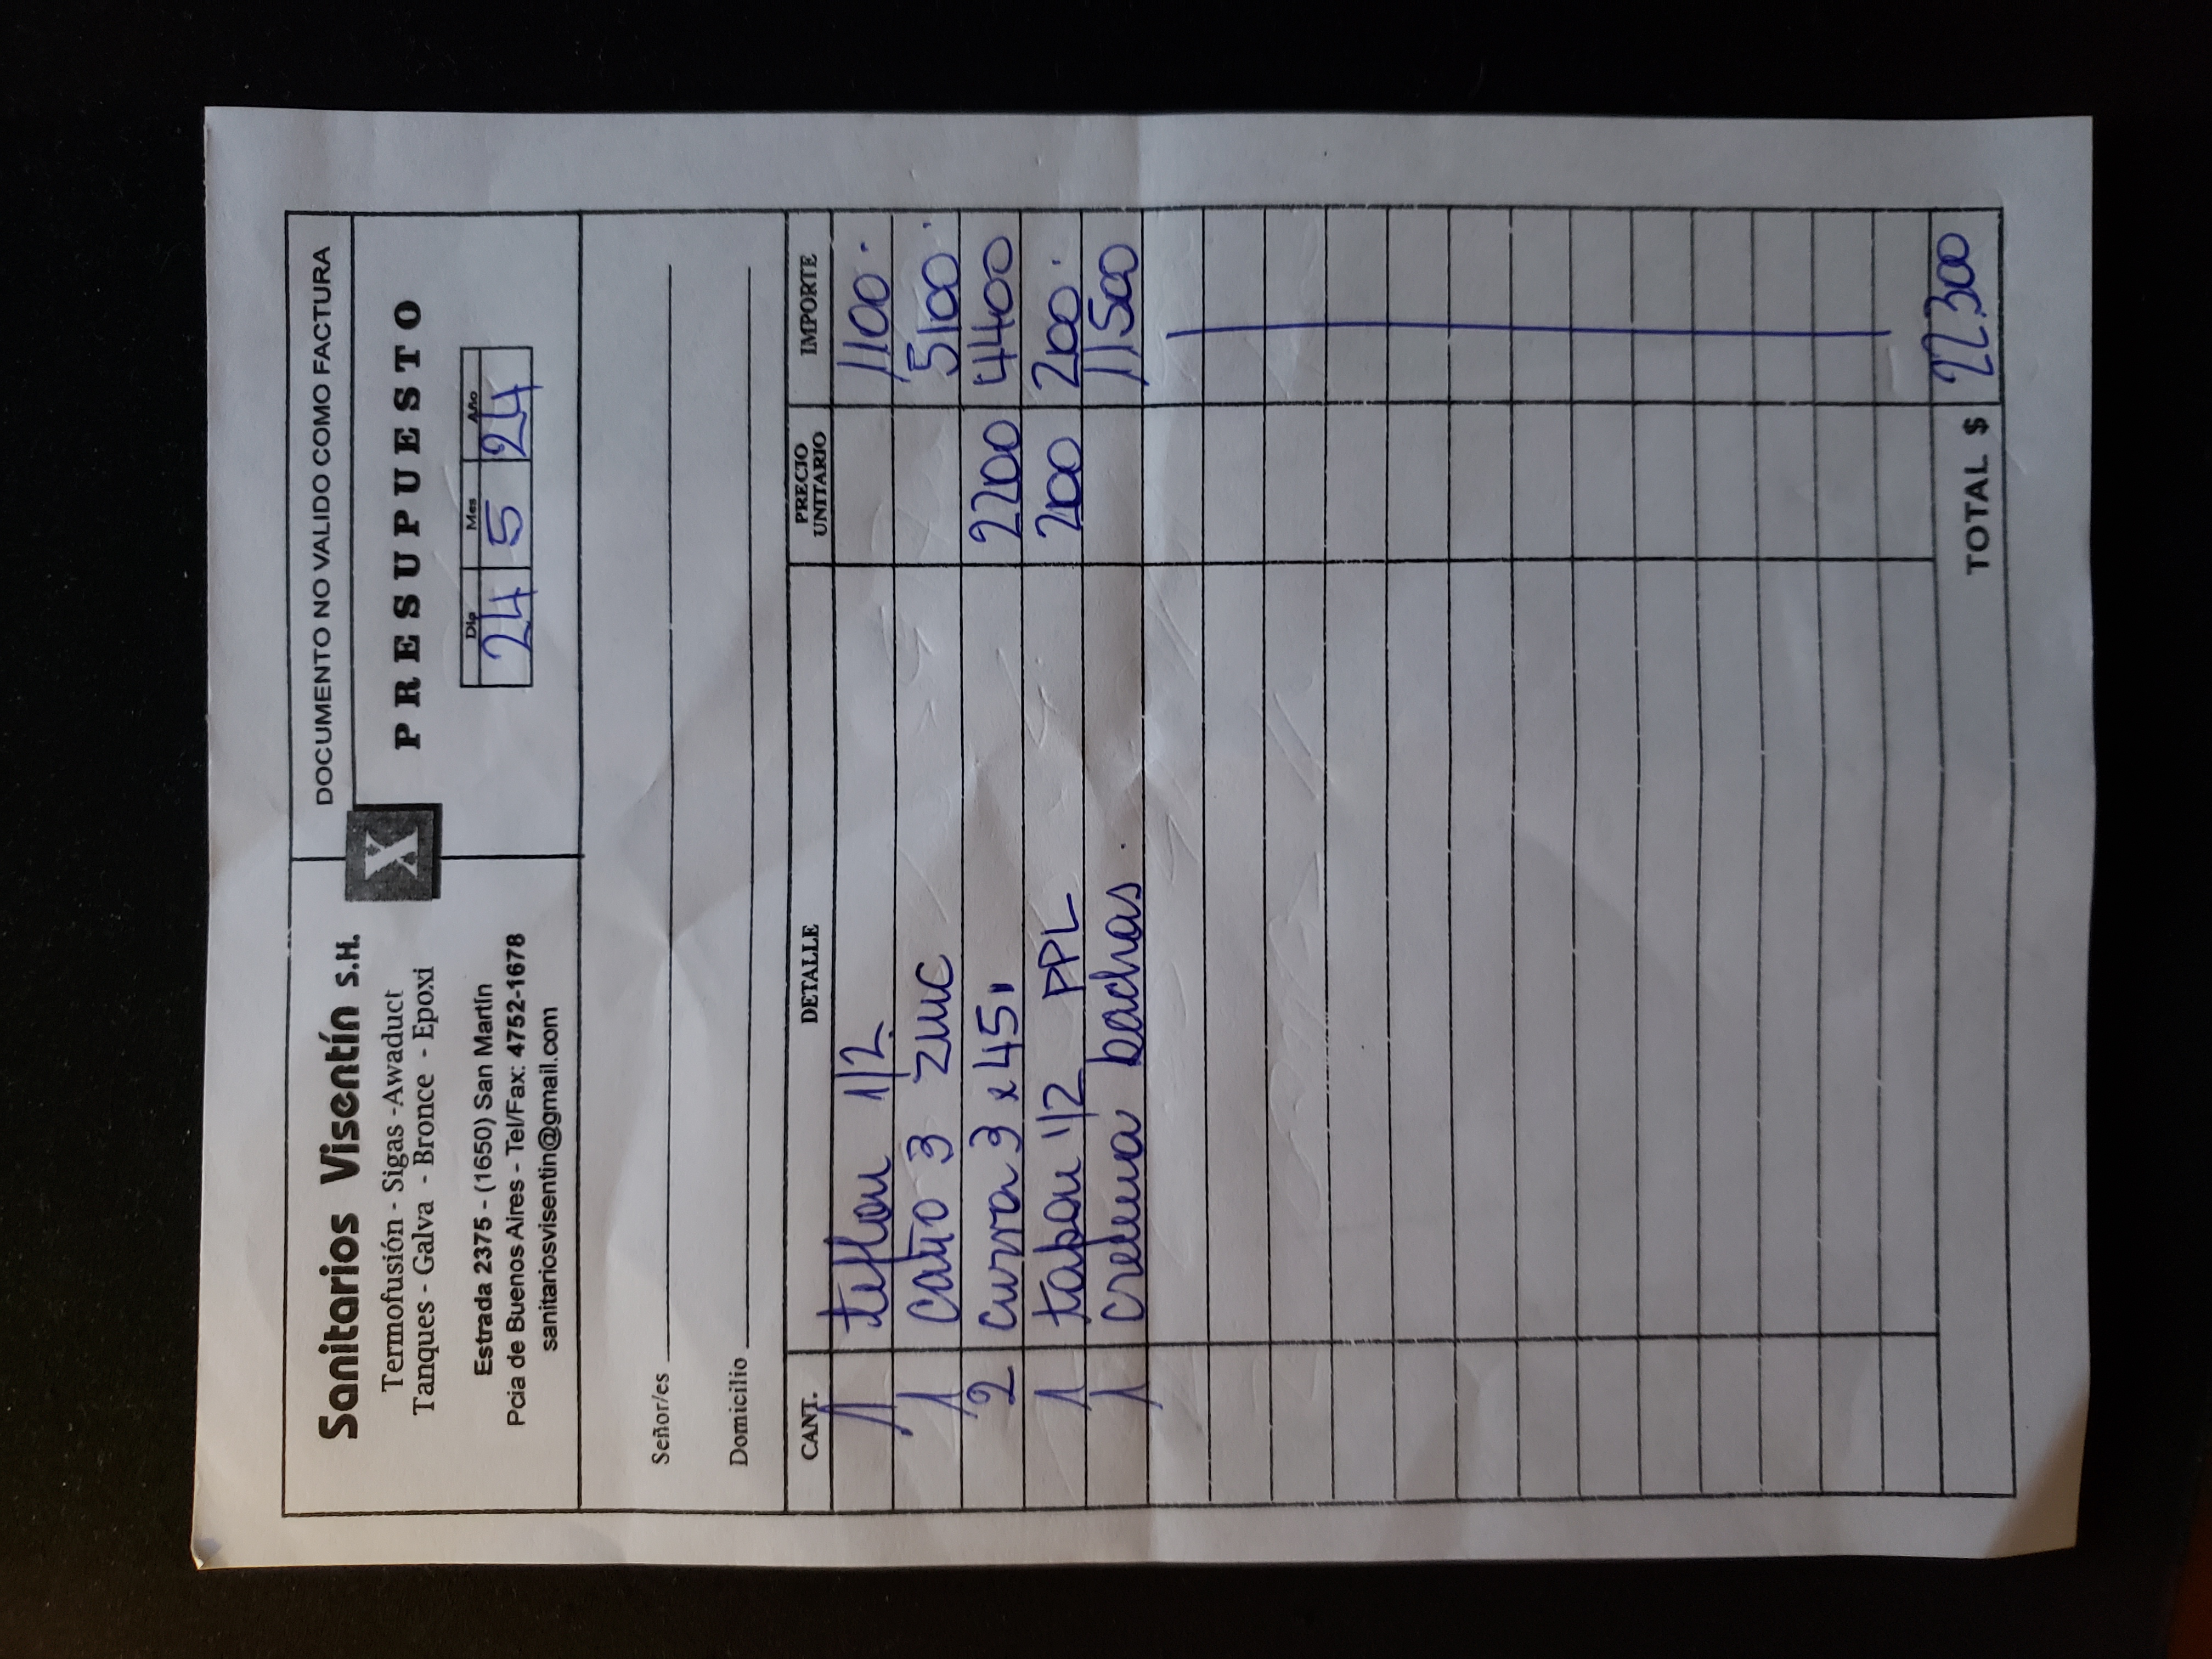 Sanitarios Visentín S.H.
Termofusión - Sigas -Awaduct
Tanques - Galva - Bronce - Epoxi
Estrada 2375 - (1650) San Martín
Pcia de Buenos Aires - Tel/Fax: 4752-1678
sanitariosvisentin@gmail.com
X
DOCUMENTO NO VALIDO COMO FACTURA
PRESUPUESTO
Dia Mes Año
24 5 24
Señor/es
Domicilio
CANT. DETALLE PRECIO UNITARIO IMPORTE
1 teflon 1/2 1100.
1 caño 3 zinc 5100.
2 curva 3 x 45 2200 4400
1 tapon 1/2 PPL 200 200.
1 cremma bachas. 11500
TOTAL $ 22.300